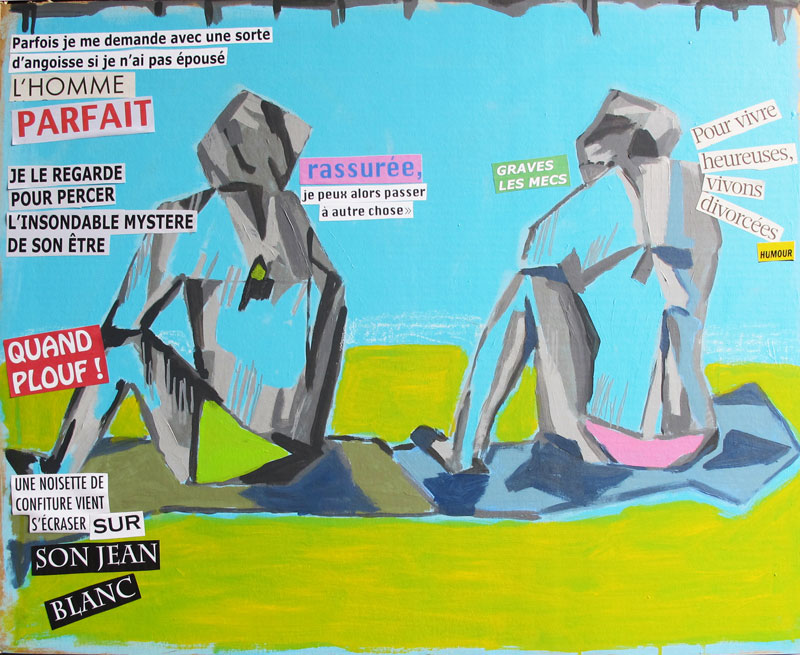 Parfois je me demande avec une sorte
d'angoisse si je n'ai pas épousé
L'HOMME
PARFAIT
JE LE REGARDE
POUR PERCER
L'INSONDABLE MYSTERE
DE SON ÊTRE
QUAND
PLOUF !
UNE NOISETTE DE
CONFITURE VIENT
S'ÉCRASER SUR
SON JEAN
BLANC
rassurée,
je peux alors passer
à autre chose»
GRAVES
LES MECS
Pour vivre
heureuses,
vivons
divorcées
HUMOUR